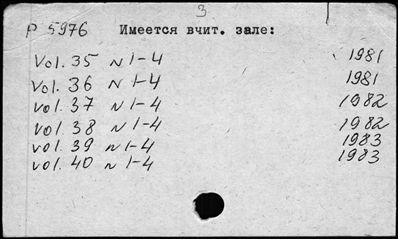 3
P 5976 Имеется вчит. зале:
Vol. 35 N 1-4 1981
Vol. 36 N 1-4 1981
vol. 37 N 1-4 1982
vol. 38 N 1-4 1982
vol. 39 N 1-4 1983
vol. 40 N 1-4 1983